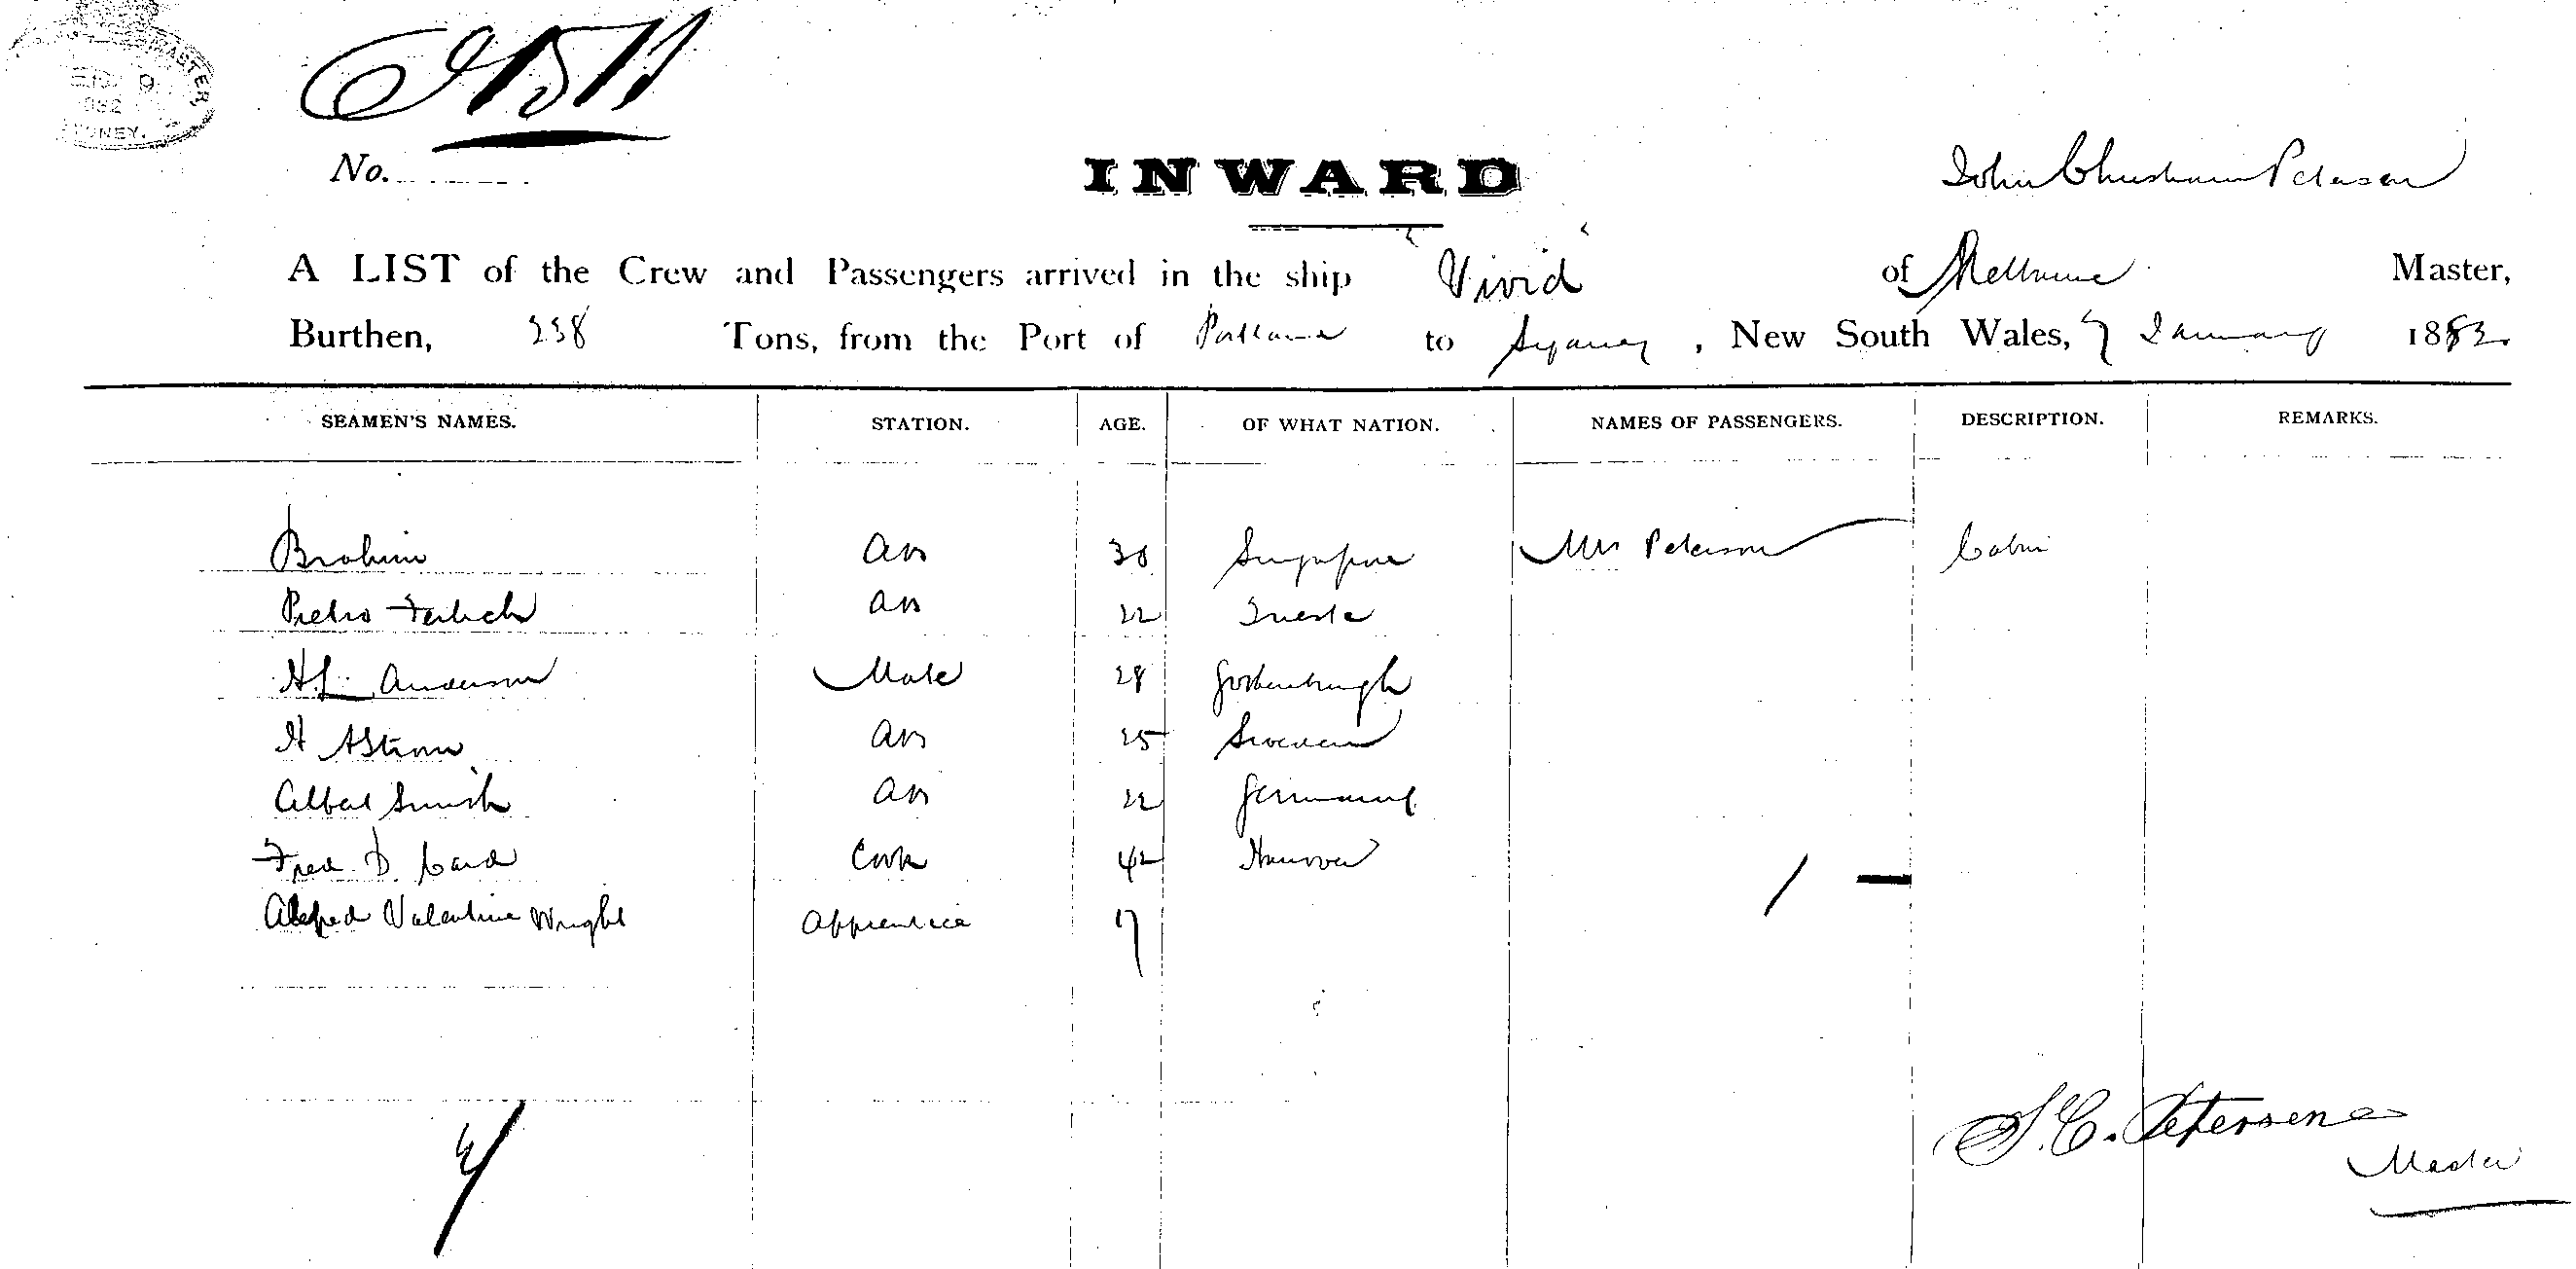 MASTER
9
SYDNEY.
No.
INWARD
John Christian Peterson
A LIST of the Crew and Passengers arrived in the ship Vivid of Melbourne Master,
Burthen, 238 Tons, from the Port of Portland to Sydney, New South Wales, 7 January 1882.
SEAMEN'S NAMES. STATION. AGE. OF WHAT NATION. NAMES OF PASSENGERS. DESCRIPTION. REMARKS.
Brahim AB 30 Singapore Mrs Peterson Cabin
Pietro AB 22 Trieste
H L Anderson Mate 28 Gothenburgh
H AStrom AB 25 Sweden
Albert Smith AB 22 Germany
Fred D. Card Cook 42 Hanover
Alfred Valentine Wright Apprentice 17
1 —
7
J. C. Petersen
Master